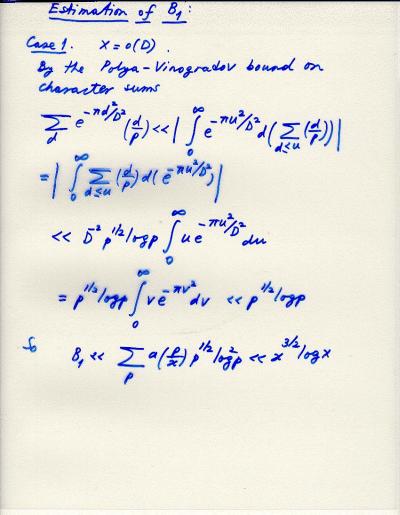 Estimation of B₁:
Case 1. X = o(D).
By the Polya-Vinogradov bound on
character sums
∑_d e^{-πd²/D²} (d/p) << | ∫_0^∞ e^{-πu²/D²} d( ∑_{d≤u} (d/p) ) |
= | ∫_0^∞ ∑_{d≤u} (d/p) d( e^{-πu²/D²} ) |
<< D^{-2} p^{1/2} log p ∫_0^∞ u e^{-πu²/D²} du
= p^{1/2} log p ∫_0^∞ v e^{-πv²} dv << p^{1/2} log p
So B₁ << ∑_p a(p/x) p^{1/2} log² p << x^{3/2} log x